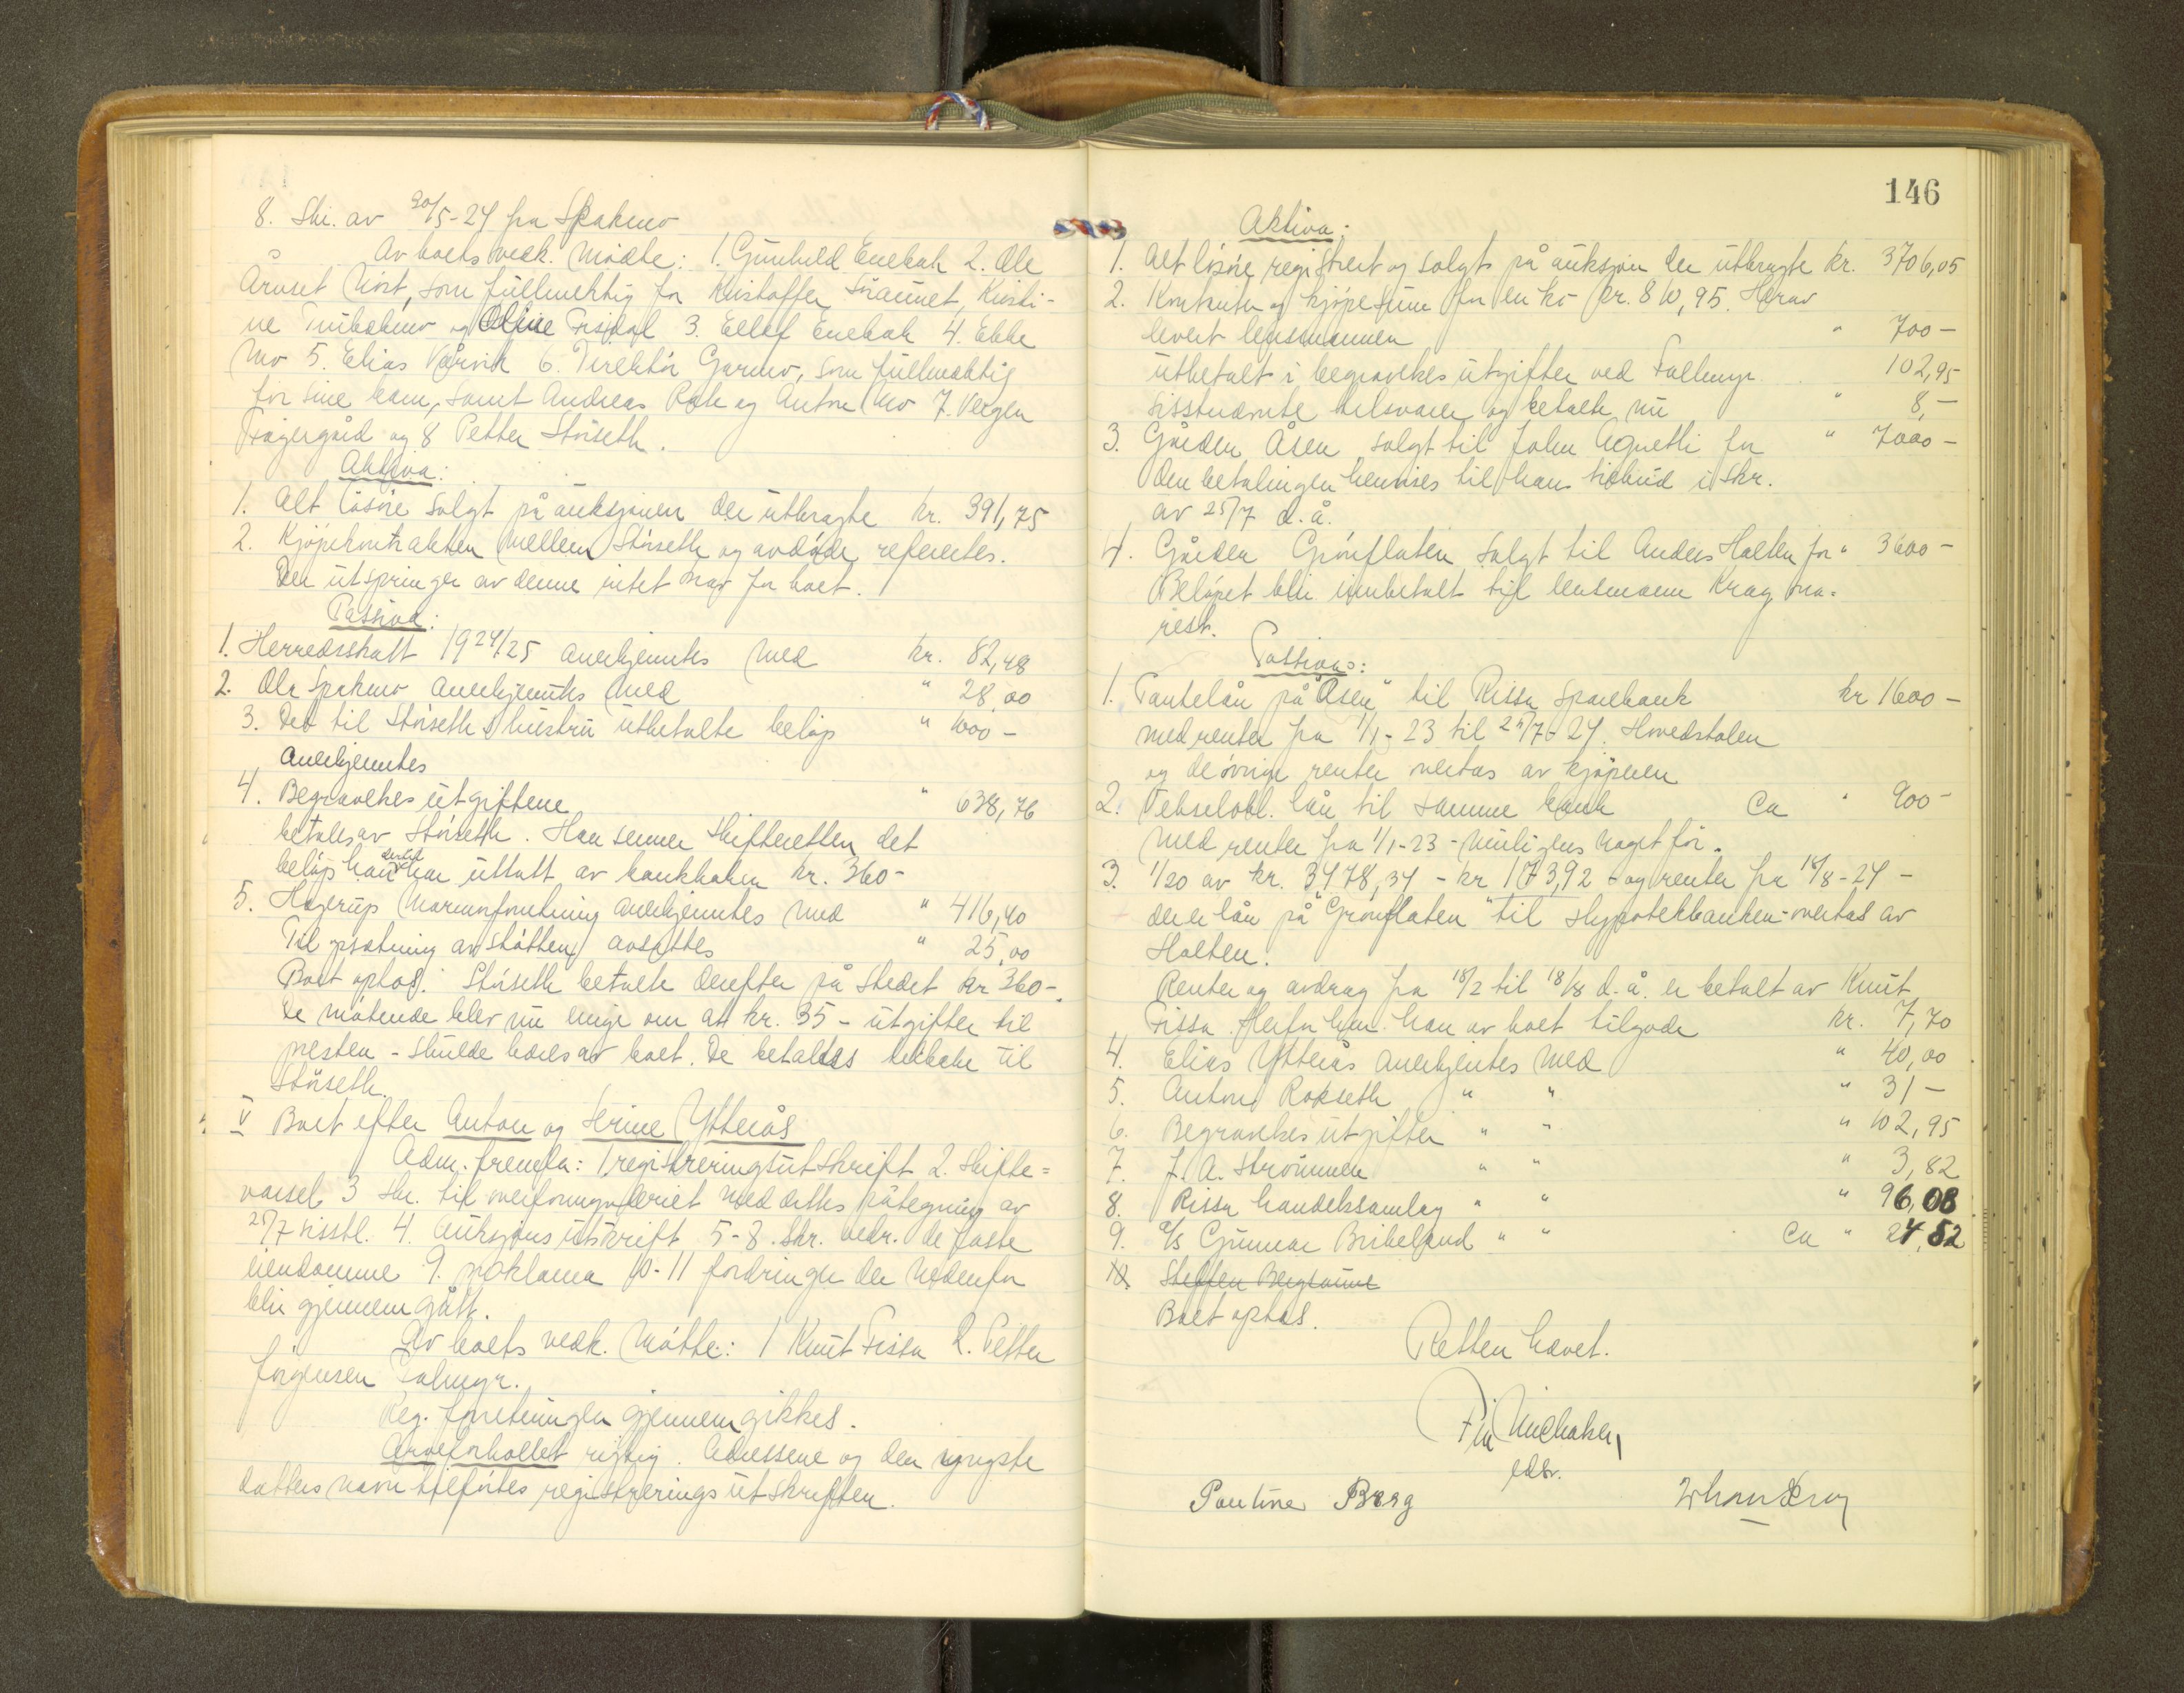 8. Skr. av 20/5-24 fra Spakmo
Av boets vedk. mødte: 1. Gunhild Enebak 2. Ole
Årnset Kvist, som fullmektig for Kristoffer Kristi-
ne og Oline 3. Eellef Enebak 4. Ebbe
Mo 5. Elias Vårvik 6. Direktør Garmo, som fullmektig
for sine barn, samt Andreas Rak og Anton Mo 7.
Fagergård og 8 Petter Størseth.
Aktiva:
1. Alt løsøre solgt på auksjonen der utbragte kr. 391,75
2. Kjøpekontrakten mellem Størseth og avdøde refereertes.
Der utspringer av denne intet krav for boet.
Passiva:
1. Herredsskatt 1924/25 anerkjentes med kr. 82,48
2. Ole Spakmo anerkjentes med " 28,00
3. Det til Størseths hustru utbetalte beløp " 1000 -
anerkjentes
4. Begravelsesutgiftene " 638,76
betales av Størseth. Han senner skifteretten det
beløp han dertil har uttatt av bankboken kr. 360-
5. Hagerups marmorforretning anerkjentes med " 416,40
Til opsætning av støtten avsattes " 25,00
Boet optas. Størseth betalte derefter på stedet kr 360-.
De møtende blev nu enige om at kr. 35 - utgifter til
presten - skulde bæres av boet. De betaltes tilbake til
Størseth.
V Boet efter Anton og Serine Ytterås
Adm. fremla: 1 registreringsutskrift 2. skifte=
varsel 3 skr. til overformynderiet med dettes påtegning av
25/7 sisstl. 4. Auksjonsutskrift 5-8. Skr. vedr. de faste
eiendomme 9. proklama 10-11 fordringer der nedenfor
blir gjennemgått.
Av boets vedk. møtte: 1 Knut Fissa 2. Petter
Jørgensen Falmyr.
Reg. forretningen gjennemgikkes.
Arveforholdet riktig. Adressene og den yngste
datters navn tilførtes registreringsutskriften.
146
Aktiva:
1. Alt løsøre registrert og solgt på auksjon der utbragte kr. 3706,05
2. Kontanter og kjøpesum for en ko kr. 810,95. Herav
levert lensmannen " 700 -
utbetalt i begravelsesutgifter ved Falmyr " 102,95
Sisstnevnte tilsvarer og betalte nu " 8,-
3. Gården Åsen solgt til John Agnetli for " 7000 -
Om betalingen henvises til hans tilbud i skr.
av 25/7 d. å.
4. Gården Grønflaten solgt til Anders Holten for " 3600 -
Beløpet blir innbetalt til lensmann Krag ma-
rest.
Passiva:
1. Pantelån på "Åsen" til Rissa Sparebank kr 1600 -
med renter fra 1/1-23 til 25/7-24. Hovedstolen
og de øvrige renter overtas av kjøperen
2. Vekselobl. lån til samme bank ca " 900 -
med renter fra 1/1-23 - muligens noget før.
3. 1/20 av kr. 3478,34 - kr 173,92 - og renter fra 18/8-24 -
der er lån på "Grønflaten" til Hypotekbanken - overtas av
Holten.
Renter og avdrag fra 18/2 til 18/8 d. å. er betalt av Knut
Fissa. Herfor har han av boet tilgode kr. 7,70
4. Elias Ytterås anerkjentes med " 40,00
5. Anton Rokseth " " " 31 -
6. Begravelsesutgifter " " " 102,95
7. J. A. Strømmen " " " 3,82
8. Rissa handelssamlag " " " 96,08
9. A/s Gunnar Birkeland " " ca " 24,52
10. Steffen Bergsaune
Boet optas.
Retten hævet.
edsv.
Pauline Berg